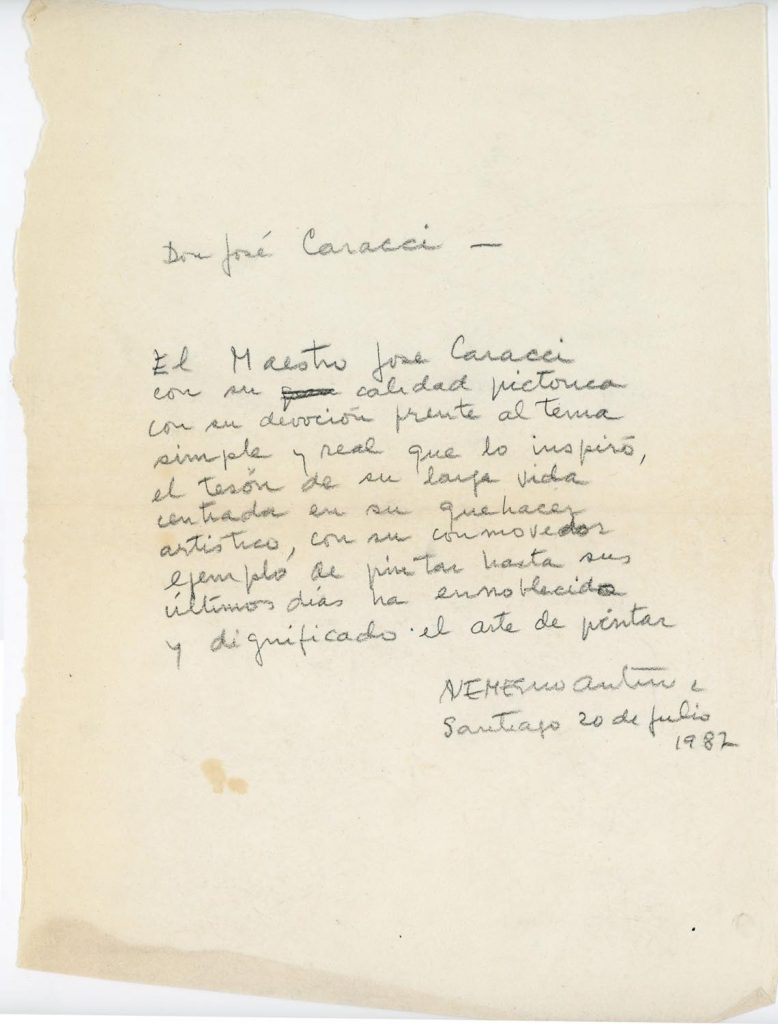 Don José Caracci —
El Maestro Jose Caracci
con su calidad pictorica
con su devoción frente al tema
simple y real que lo inspiró,
el tesón de su larga vida
centrada en su quehacer
artistico, con su conmovedor
ejemplo de pintar hasta sus
últimos días ha ennoblecido
y dignificado el arte de pintar
NEMESIO Antúnez
Santiago 20 de Julio
1982